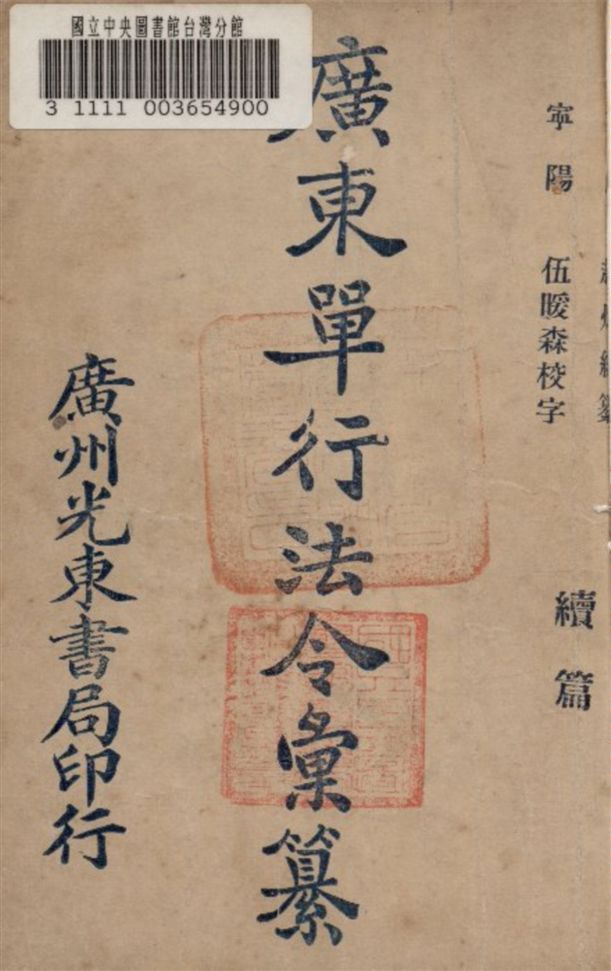 國立中央圖書館台灣分館
3 1111 003654900
寧陽 伍暖森校字
續篇
廣東單行法令彙纂
廣州光東書局印行